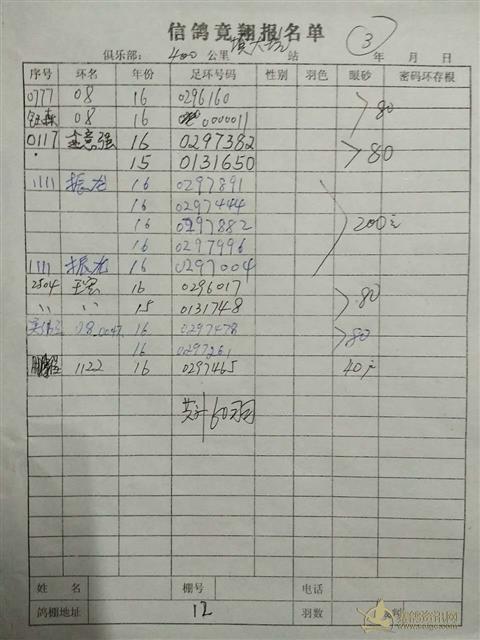 信鸽竞翔报名单 ③
俱乐部: 400 公里 站 年 月 日
序号 环名 年份 足环号码 性别 羽色 眼砂 密码环存根
0777 08 16 0296160
08 16 0000011 >80
0117 金意强 16 0297382
15 0131650 >80
1111 振龙 16 0297891
16 0297444
16 0297882 200元
16 0297996
1111 振龙 16 0297004
2504 王宏 16 0296017
〃 〃 15 0131748 >80
08.0047 16 0297478
16 0297261 >80
1122 16 0297465 40元
共计60羽
姓名 棚号 电话
鸽棚地址 12 羽数